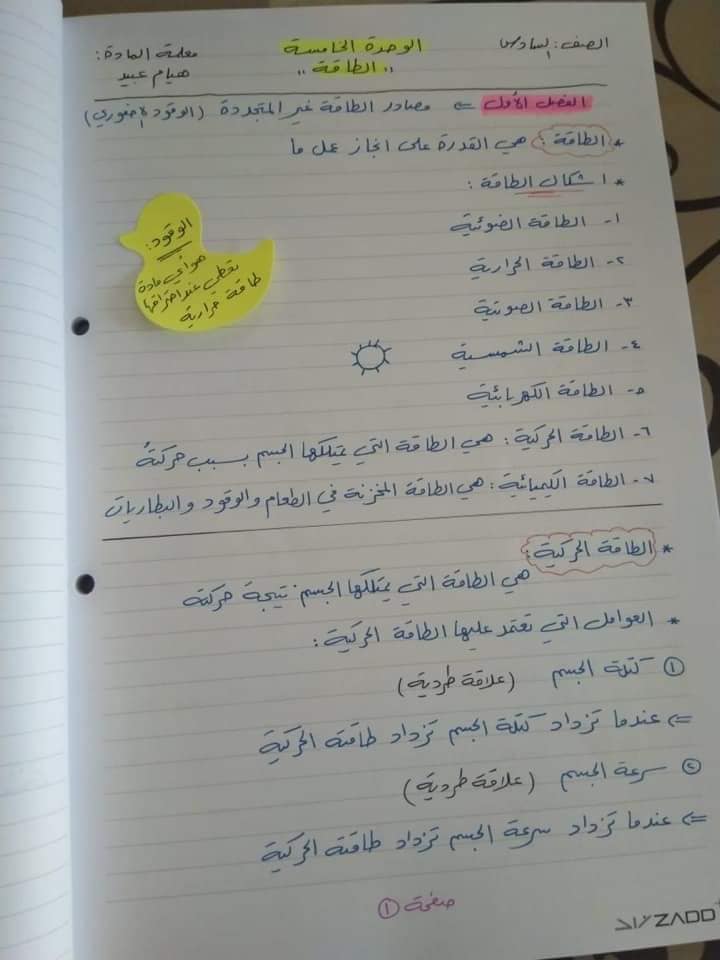 الصف: السادس
الوحدة الخامسة
"الطاقة"
معلمة المادة:
هيام عبيد
الفصل الأول ⇐ مصادر الطاقة غير المتجددة (الوقود الأحفوري)
* الطاقة: هي القدرة على انجاز عمل ما
* اشكال الطاقة:
١- الطاقة الضوئية
٢- الطاقة الحرارية
٣- الطاقة الصوتية
٤- الطاقة الشمسية
٥- الطاقة الكهربائية
٦- الطاقة الحركية: هي الطاقة التي يمتلكها الجسم بسبب حركتهُ
٧- الطاقة الكيميائية: هي الطاقة المخزنة في الطعام والوقود والبطاريات
الوقود:
هو أي مادة
تعطي عند احتراقها
طاقة حرارية
* الطاقة الحركية:
هي الطاقة التي يمتلكها الجسم نتيجة حركته
* العوامل التي تعتمد عليها الطاقة الحركية:
① كتلة الجسم (علاقة طردية)
⇐ عندما تزداد كتلة الجسم تزداد طاقته الحركية
② سرعة الجسم (علاقة طردية)
⇐ عندما تزداد سرعة الجسم تزداد طاقته الحركية
صفحة ①
ZADD